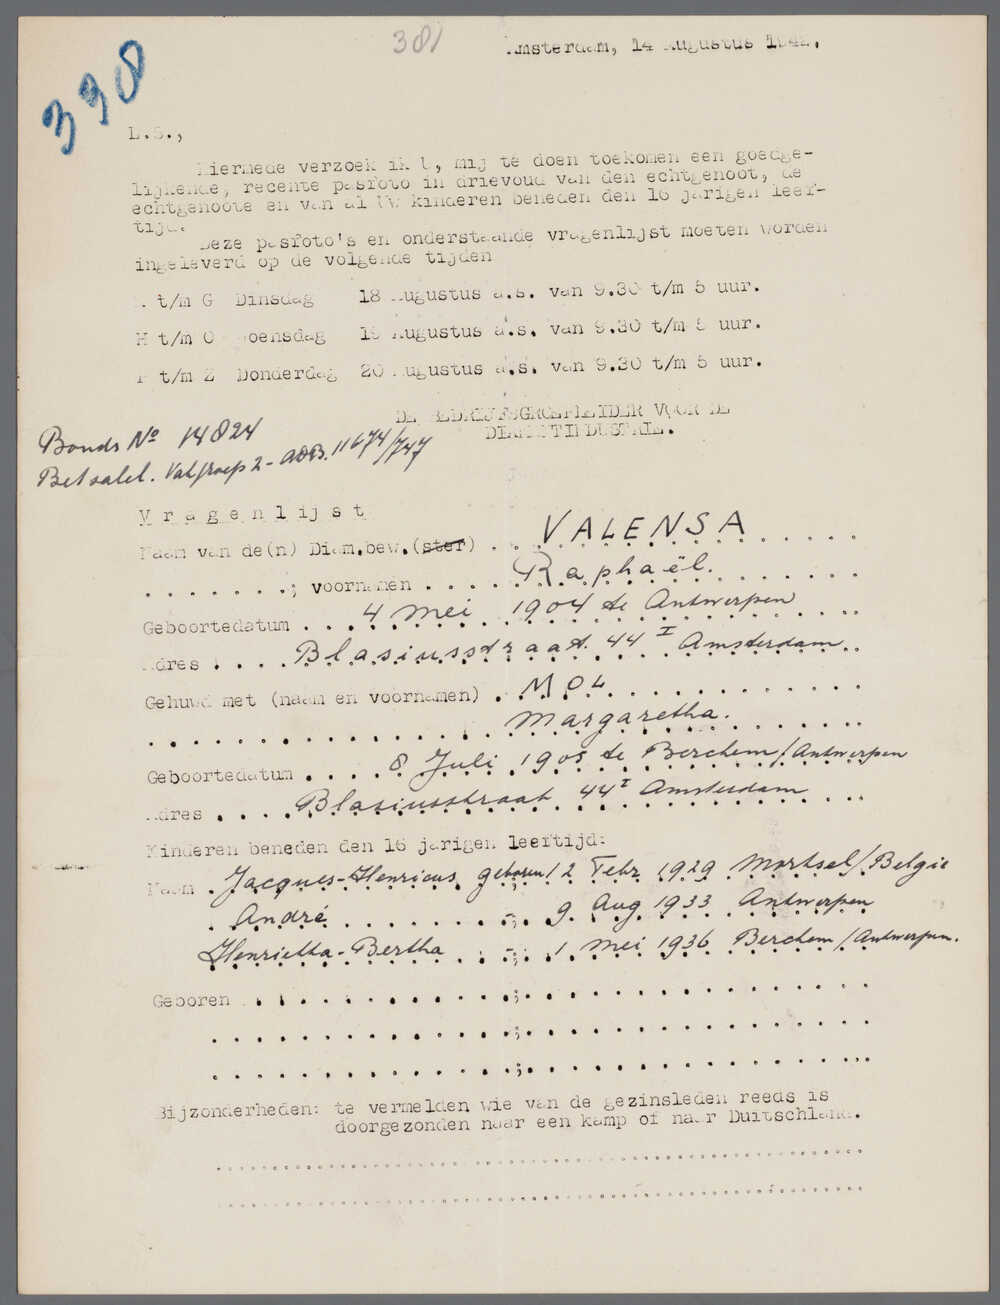 381
Amsterdam, 14 Augustus 1942.
398
L.S.,
Hiermede verzoek ik U, mij te doen toekomen een goedge-
lijkende, recente pasfoto in drievoud van den echtgenoot, de
echtgenoote en van al Uw kinderen beneden den 16 jarigen leef-
tijd.
Deze pasfoto's en onderstaande vragenlijst moeten worden
ingeleverd op de volgende tijden
A t/m G Dinsdag 18 Augustus a.s. van 9.30 t/m 5 uur.
H t/m O Woensdag 19 Augustus a.s. van 9.30 t/m 5 uur.
P t/m Z Donderdag 20 Augustus a.s. van 9.30 t/m 5 uur.
DE BEDRIJFSGROEPLEIDER VOOR DE
DIAMANTINDUSTRIE.
Bonds No 14824
Betsalel. Vakgroep 2 - ADB. 11674/747
Vragenlijst
Naam van de(n) Diam.bew.(ster) . . VALENSA
. . . . . . .; voornamen . . . . Raphaël.
Geboortedatum . . . 4 Mei 1904 te Antwerpen
Adres . . . . Blasiusstraat. 44 I Amsterdam
Gehuwd met (naam en voornamen) . MOL
Margaretha.
Geboortedatum . . . . 8 Juli 1905 te Berchem/Antwerpen
Adres . . . . Blasiusstraat 44 I Amsterdam
Kinderen beneden den 16 jarigen leeftijd:
Naam . Jacques-Henricus geboren 12 Febr 1929 Mortsel/Belgie
André . . . . . . . . -; 9 Aug 1933 Antwerpen
Henrietta-Bertha . . -; 1 Mei 1936 Berchem/Antwerpen.
Geboren . . . . . . . . . . ; . . . . . . . . . . . .
. . . . . . . . . . . . . ; . . . . . . . . . . . .
. . . . . . . . . . . . . ; . . . . . . . . . . . .
Bijzonderheden: te vermelden wie van de gezinsleden reeds is
doorgezonden naar een kamp of naar Duitschland.